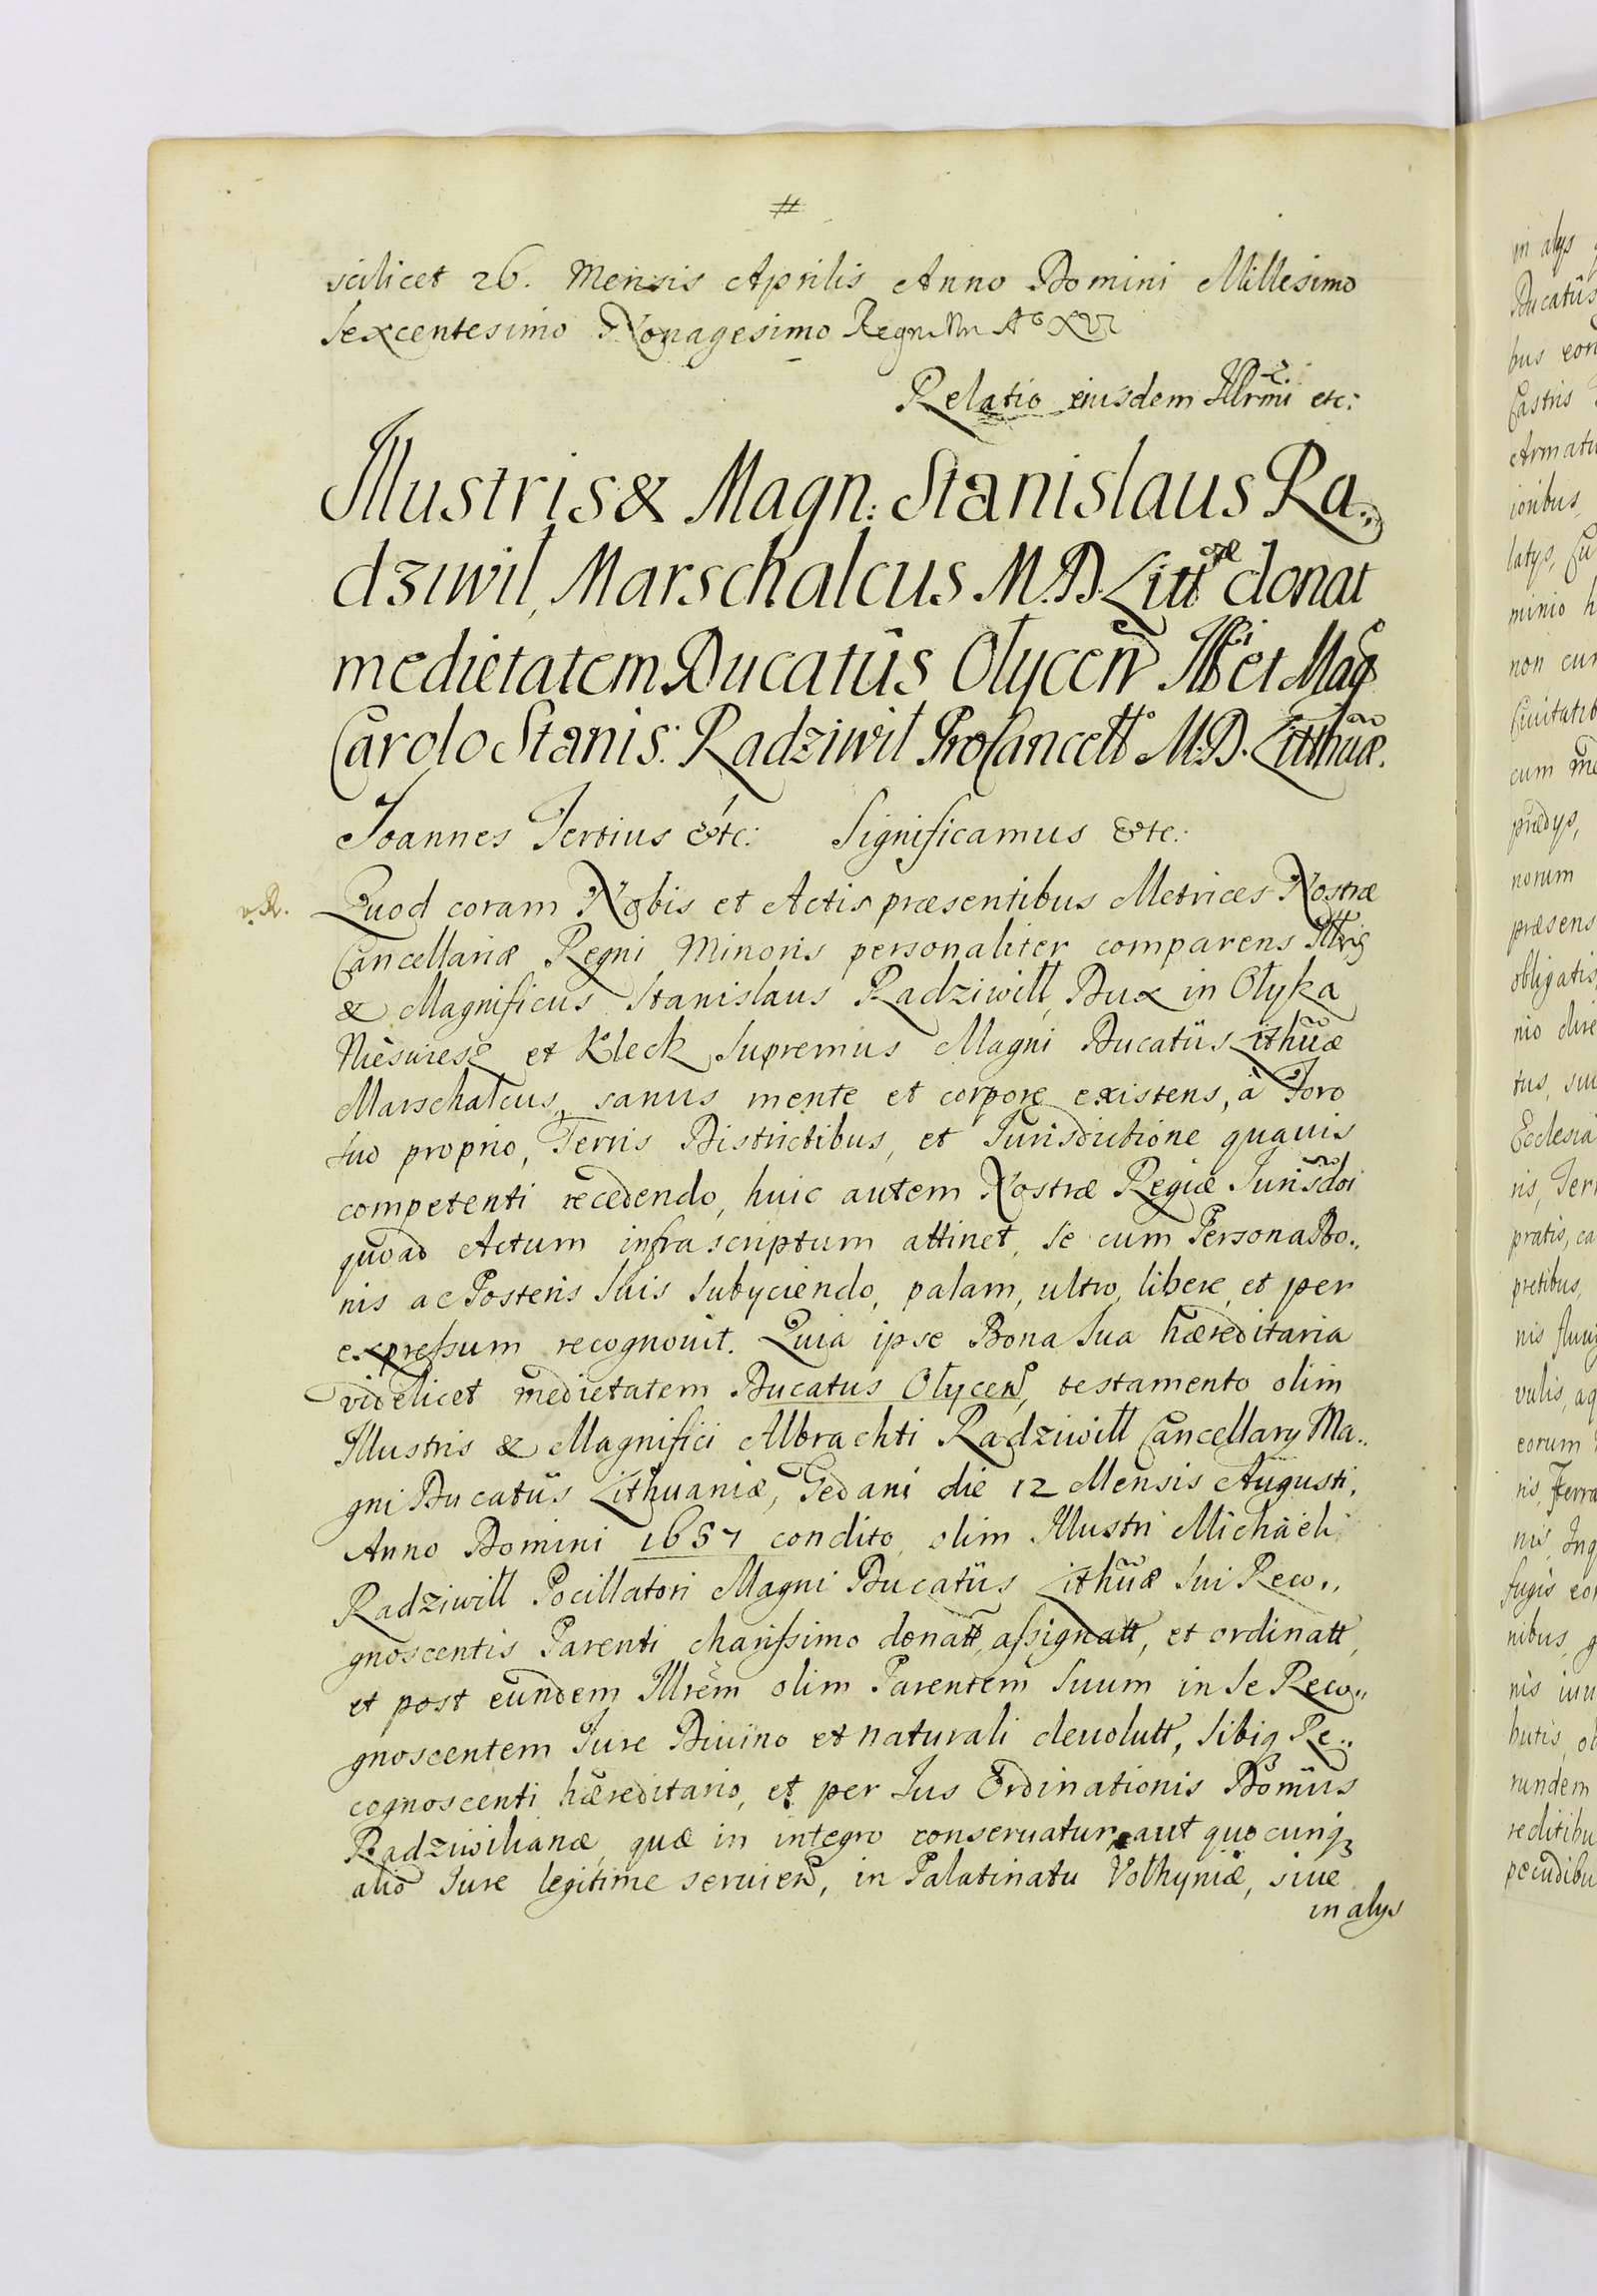 #
scilicet 26. Mensis Aprilis Anno Domini Millesimo
Sexcentesimo Nonagesimo Regni Nri Aº XVI
Relatio eiusdem Illrmi etc:
Illustris & Magn: Stanislaus Ra..
dziwil, Marschalcus M.D. Litt donat
medietatem Ducatûs Olycen Illi et Mag
Carolo Stanis: Radziwil ProCancello M.D. Litthuæ.
Joannes Tertius &tc: Significamus &tc:
v.R.
Quod coram Nobis et Actis præsentibus Metrices Nostræ
Cancellariæ Regni Minoris personaliter comparens Illris
& Magnificus Stanislaus Radziwill, Dux in Olyka
Niesuiesz et Kleck Supremus Magni Ducatûs Lithuæ
Marschalcus, sanus mente et corpore existens, à Foro
Suo proprio, Terris Districtibus, et Jurisdictione quauis
competenti recedendo, huic autem Nostræ Regiæ Jurisdoi
quoad Actum infrascriptum attinet, Se cum Persona Bo..
nis ac Posteris Suis Subyciendo, palam, ultro, libere, et per
expressum recognouit. Quia ipse Bona Sua hæreditaria
videlicet medietatem Ducatus Olycen, testamento olim
Illustris & Magnifici Albrachti Radziwill Cancellary Ma..
gni Ducatûs Lithuaniæ, Gedani die 12 Mensis Augusti,
Anno Domini 1657 condito, olim Illustri Michaeli
Radziwill Pocillatori Magni Ducatûs Lithuæ Sui Reco..
gnoscentis Parenti charissimo donatt, assignatt, et ordinatt,
et post eundem Illrem olim Parentem Suum in Se Reco..
gnoscentem Jure Diuino et naturali deuolutt, Sibiq Re..
cognoscenti hæreditario, et per Jus Ordinationis Domûs
Radziwilianæ, quæ in integro conseruatur, aut quocunq
alio Jure legitime seruien, in Palatinatu Volhyniæ, siue
in alys
in alys
Ducatûs
bus
Castris
Armatu
ionibus,
latys, Cu
minio h
non cun
Ciuitatib
cum
prædys,
norum
præsens
obligatis
nio dire
tus, sui
Ecclesia
ris, Terr
pratis, ca
pretibus,
nis fluuy
vulis, aq
eorum
ris, Terra
nis, Inq
fugis eor
nibus, g
nis iuu
butis, ob
rundem
reditibu
pecudibu